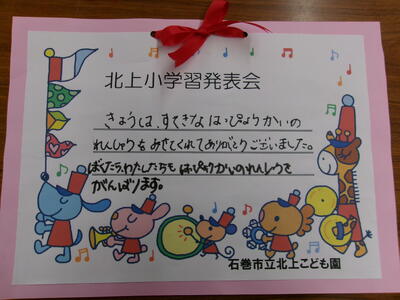 北上小学習発表会
きょうは、すてきなはっぴょうかいの
れんしゅうをみせてくれてありがとうございました。
ぼくたち、わたしたちもはっぴょうかいのれんしゅうを
がんばります。
石巻市立北上こども園